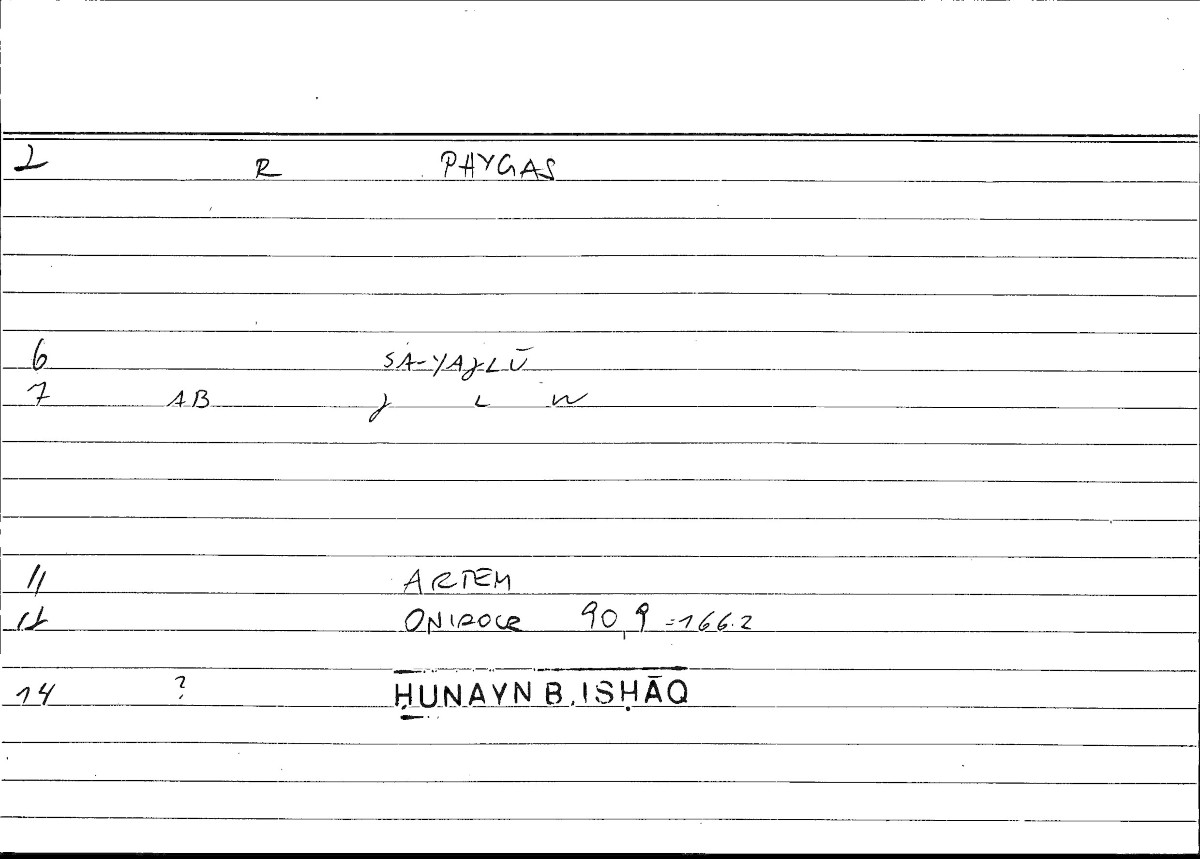 2 R PHYGAS
6 SA-YAJLŪ
7 AB J L W
11 ARTEM
12 ONIROCR 90,9 =166.2
14 ? ḤUNAYN B. ISḤĀQ